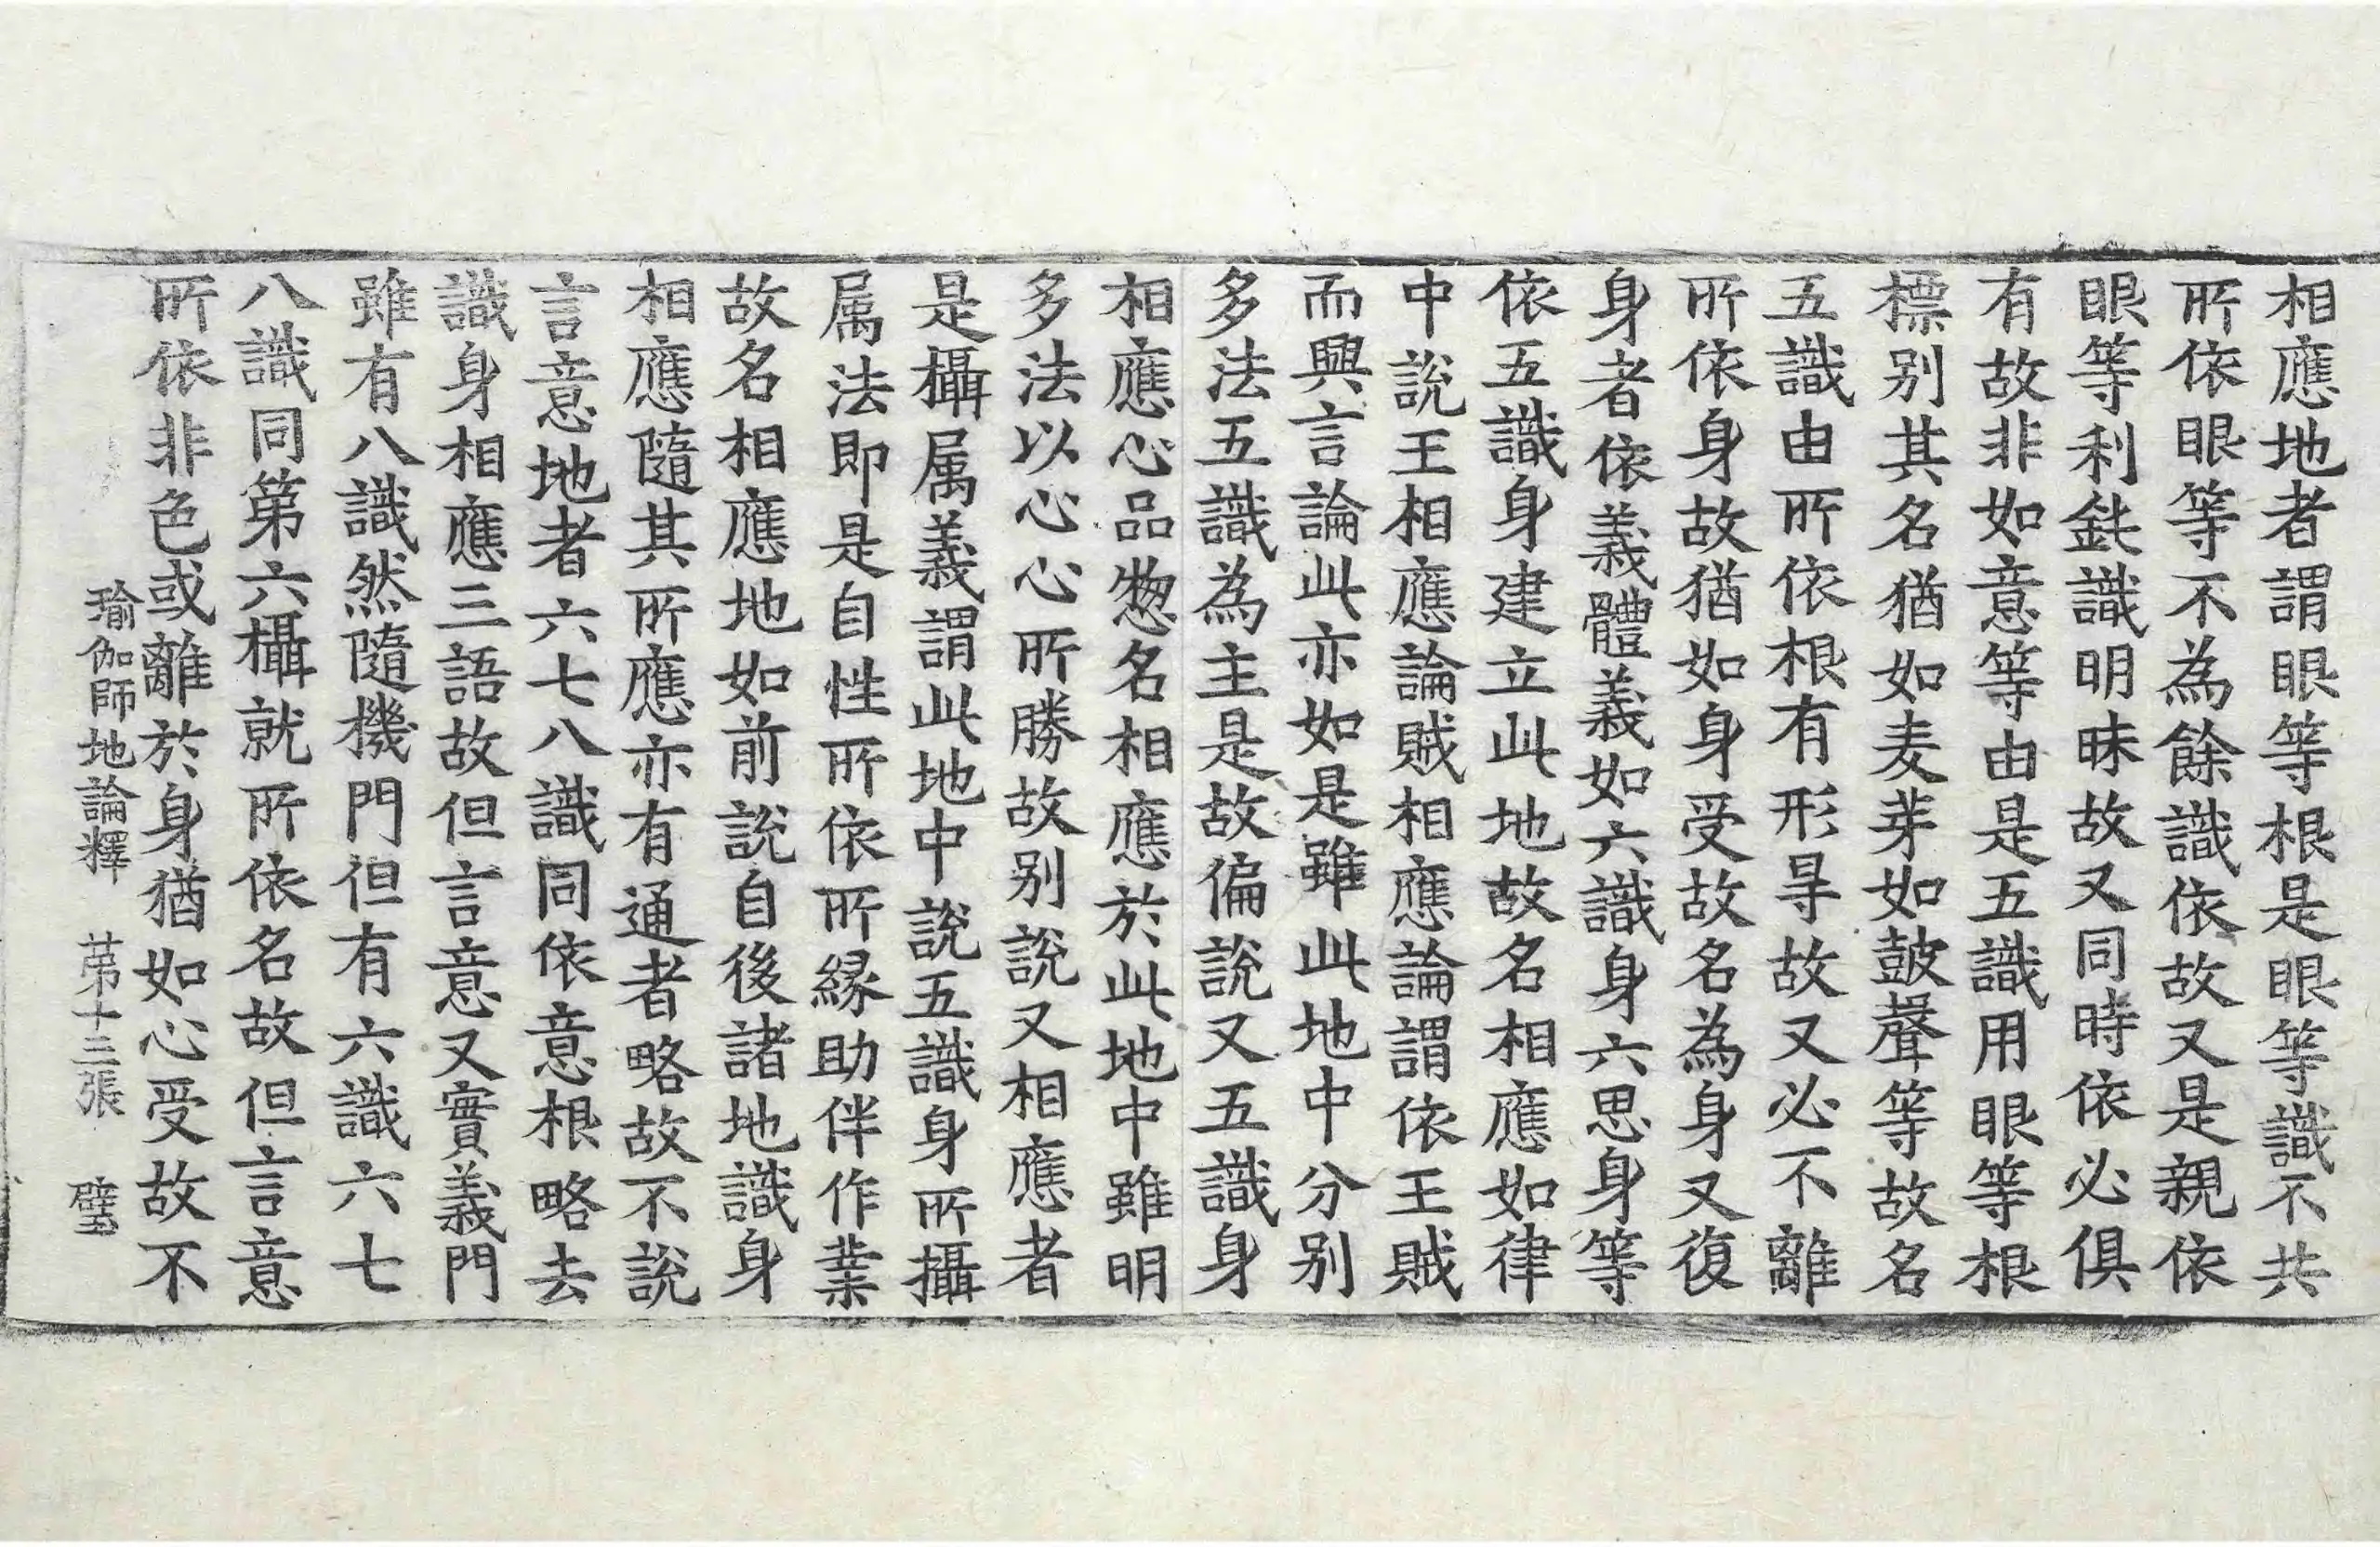 相應地者謂眼等根是眼等識不共
所依眼等不為餘識依故又是親依
眼等利鈍識明昧故又同時依必俱
有故非如意等由是五識用眼等根
標别其名猶如麦芽如皷聲等故名
五識由所依根有形㝵故又必不離
所依身故猶如身受故名為身又復
身者依義體義如六識身六思身等
依五識身建立此地故名相應如律
中說王相應論賊相應論謂依王賊
而興言論此亦如是雖此地中分别
多法五識為主是故偏說又五識身
相應心品惣名相應於此地中雖明
多法以心心所勝故别說又相應者
是攝属義謂此地中說五識身所攝
属法即是自性所依所緣助伴作業
故名相應地如前說自後諸地識身
相應隨其所應亦有通者略故不說
言意地者六七八識同依意根略去
識身相應三語故但言意又實義門
雖有八識然隨機門但有六識六七
八識同第六攝就所依名故但言意
所依非色或離於身猶如心受故不
瑜伽師地論釋 苐十三張 璧